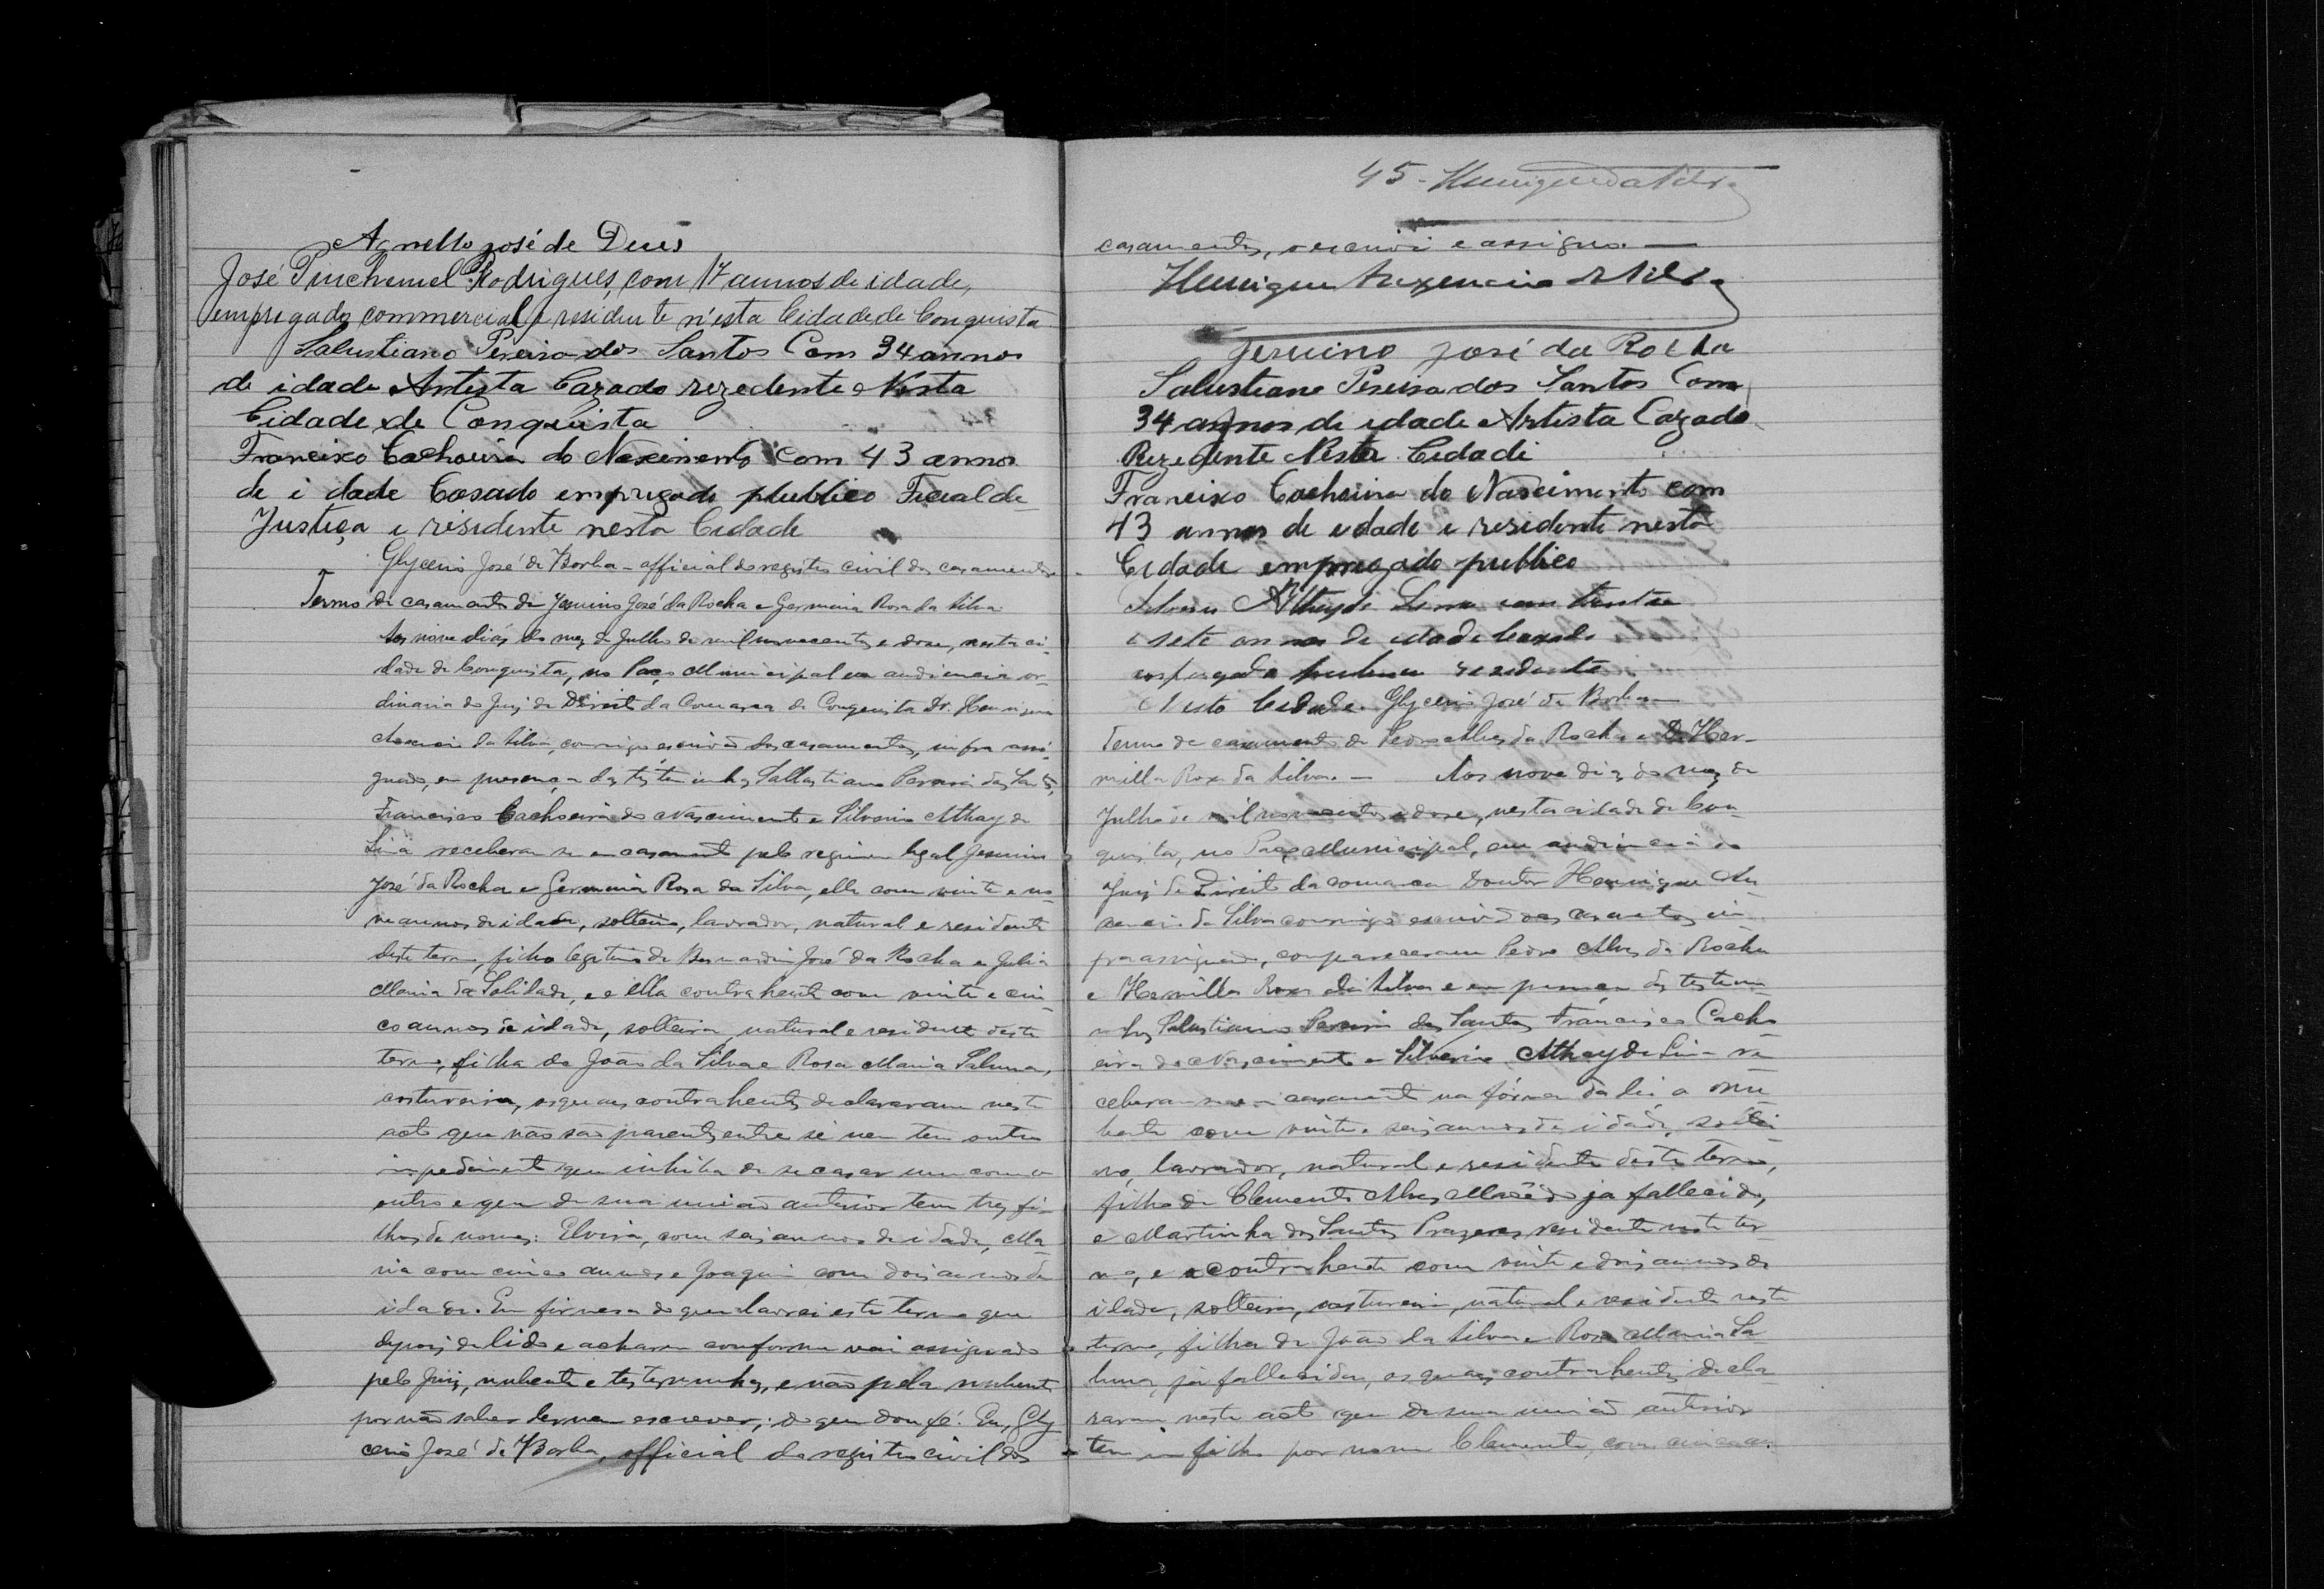 Agnello José de Deus
José Pinchemel Rodrigues, com 17 annos de idade,
empregado commercial e residente n'esta Cidade de Conquista
Salustiano Pereira dos Santos Com 34 annos
de idade Artista Cazado rezedente Nesta
Cidade de Conquista
Francisco Cachoeira do Nascimento com 43 annos
de idade Casado empregado publico Fiscal de
Justiça e residente nesta Cidade
Glycerio José de Borba - official do registro civil dos casamentos
Termo de casamento de Jesuino José da Rocha e Germinia Rosa da Silva
Aos nove dias do mez de Julho de mil novecentos e dose, nesta ci-
dade de Conquista, no Paço Municipal em audiencia or-
dinaria do Juiz de Direito da Comarca de Conquista Dr. Henrique
da Silva, commigo escrivão dos casamentos, infra assi-
gnado, em presença das testemunhas Sallustiano Pereira dos Santos,
Francisco Cachoeira do Nascimento e Silverio Athayde
Lima receberam se em casamento pelo regimen legal Jesuino
José da Rocha e Germinia Rosa da Silva, elle com vinte e no-
ve annos de idade, solteiro, lavrador, natural e residente
deste termo, filho legitimo de Bernardino José da Rocha e Julia
Maria da Solidade, e ella contrahente com vinte e cin-
co annos de idade, solteira, natural e residente deste
termo, filha de João da Silva e Rosa Maria
costureira, os quaes contrahentes declararam neste
acto que não são parentes entre si nem tem outro
impedimento que inhiba de se casar um com o
outro e que de sua união anterior tem tres fi-
lhos de nomes: Elvira, com seis annos de idade, Ma-
ria com cinco annos e Joaquim com dois annos de
idade. Em firmesa do que lavrei este termo que
depois de lido e acharem conforme vai assignado
pelo Juiz, nubente e testemunhas, e não pela nubente
por não saber ler nem escrever; do que dou fé. Eu, Gly
cerio José de Borba, official do registro civil dos
45 - Henrique da Silva
casamentos, o escrivi e assigno. —
Henrique da Silva
Jesuino José da Rocha
Salustiano Pereira dos Santos Com
34 annos de idade Artista Cazado
Rezedente Nesta Cidade
Francisco Cachoeira do Nascimento com
43 annos de idade e residente nesta
Cidade empregado publico
Silverio Athayde Lima com trinta
e sete annos de idade Casado
empregado publico residente
Nesta Cidade. Glycerio José de Borba
Termo de casamento de Pedro Alves da Rocha e D. Her-
milla Rosa da Silva. — Aos nove dias do mez de
Julho de mil novecentos e dose, nesta cidade de Con-
quista, no Paço Municipal, em audiencia do
Juiz de Direito da comarca Doutor Henrique
da Silva commigo escrivão dos casamentos in-
fra assignado, compareceram Pedro Alves da Rocha
e Hermilla Rosa da Silva e em presença das testemu-
nhas Salustiano Pereira dos Santos Francisco Cacho
eira do Nascimento e Silverio Athayde Lima re
ceberam se em casamento na fórma da lei, o nu
bente com vinte e seis annos de idade, soltei-
ro, lavrador, natural e residente deste termo,
filho de Clemente Alves Macêdo já fallecido,
e Martinha dos Santos Prazeres residente neste ter-
mo, e a contrahente com vinte e dois annos de
idade, solteira, costureira, natural e residente neste
termo, filha de João da Silva e Rosa Maria
já fallecidos, os quaes contrahentes decla-
raram neste acto que de sua união anterior
tem um filho por nome Clemente, com